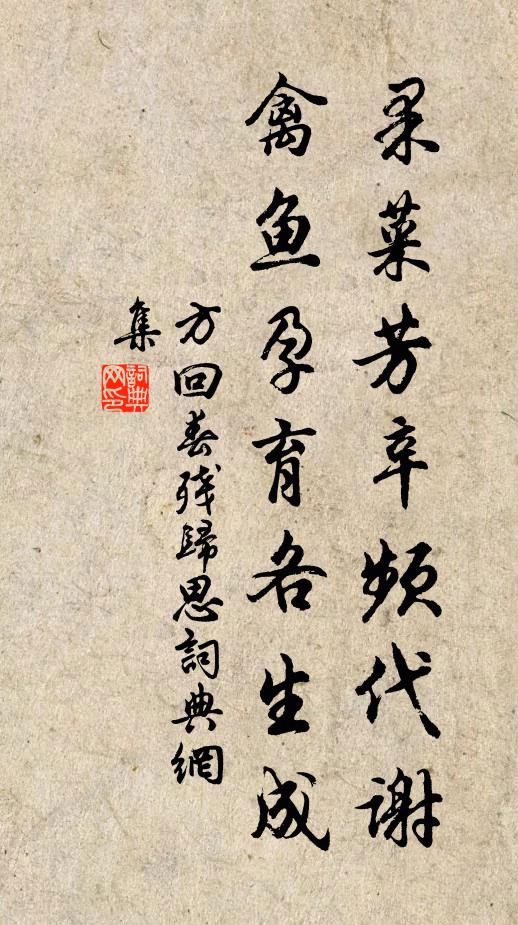 果菜芳辛频代谢
禽鱼孕育各生成
方回春残歸思詞典網
集
詞典
网印